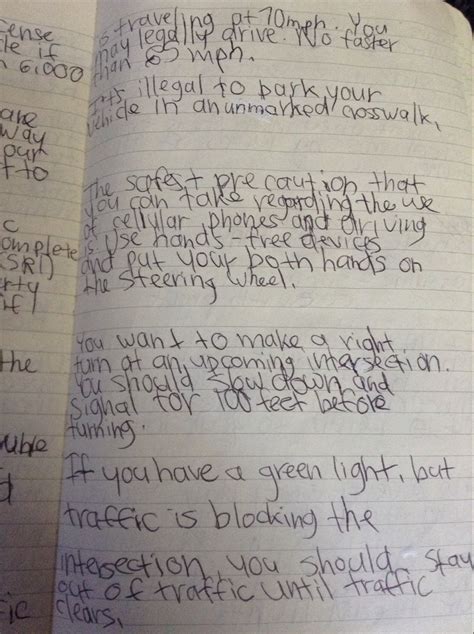 ense
cle if
n 6,000
are
way
our
f to
c
omplete
(SR1)
erty
if
the
uble
d
ic
is traveling at 70mph. You
may legally drive. No faster
than 65 mph.
It is illegal to park your
vehicle in an unmarked crosswalk.
The safest precaution that
you can take regarding the use
of cellular phones and driving
is Use hands-free devices
and put your both hands on
the steering wheel.
You want to make a right
turn at an upcoming intersection.
You should slow down and
signal for 100 feet before
turning.
If you have a green light, but
traffic is blocking the
intersection, you should stay
out of traffic until traffic
clears.